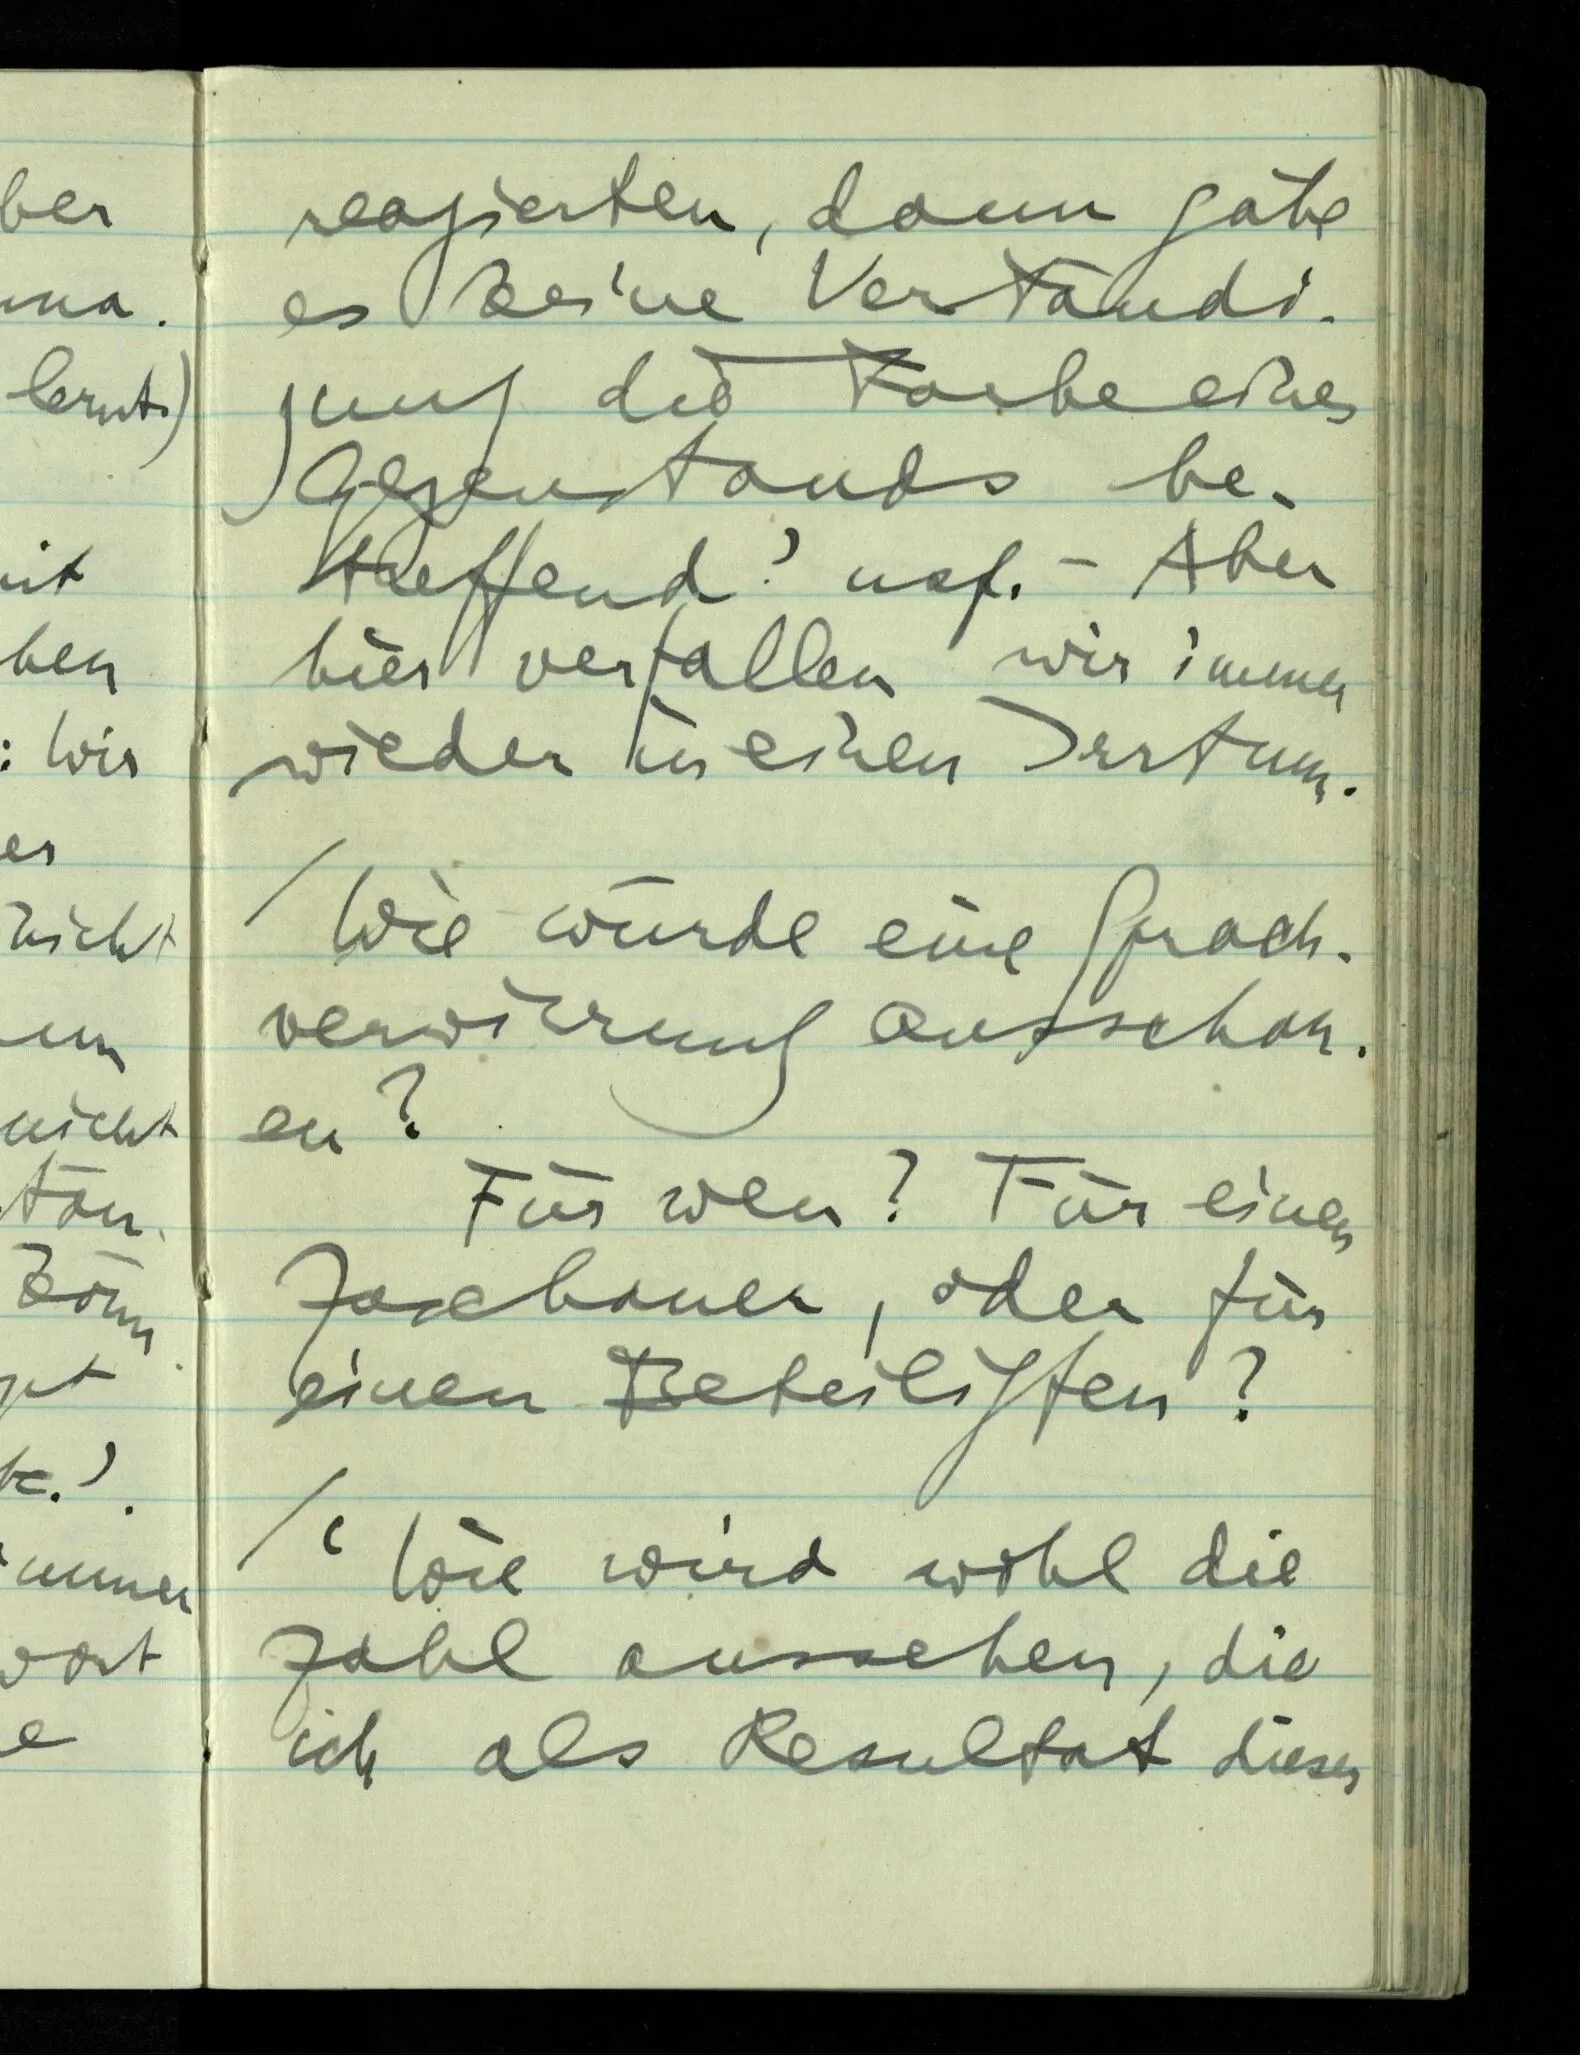 ber
lernt)
ben
: Wir
er
nicht
nicht
immer
wort
e
reagierten, dann gäbe
es keine Verständi-
gung die Farbe eines
Gegenstands be-
treffend' usf. – Aber
hier verfallen wir immer
wieder in einen Irrtum.
/ Wie würde eine Sprach-
verwirrung ausschau-
en?
Für wen? Für einen
Zuschauer, oder für
einen Beteiligten?
/ ‘Wie wird wohl die
Zahl aussehen, die
ich als Resultat dieser